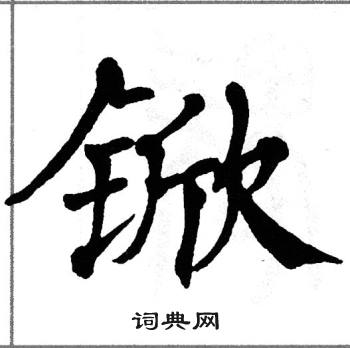 锨
词典网